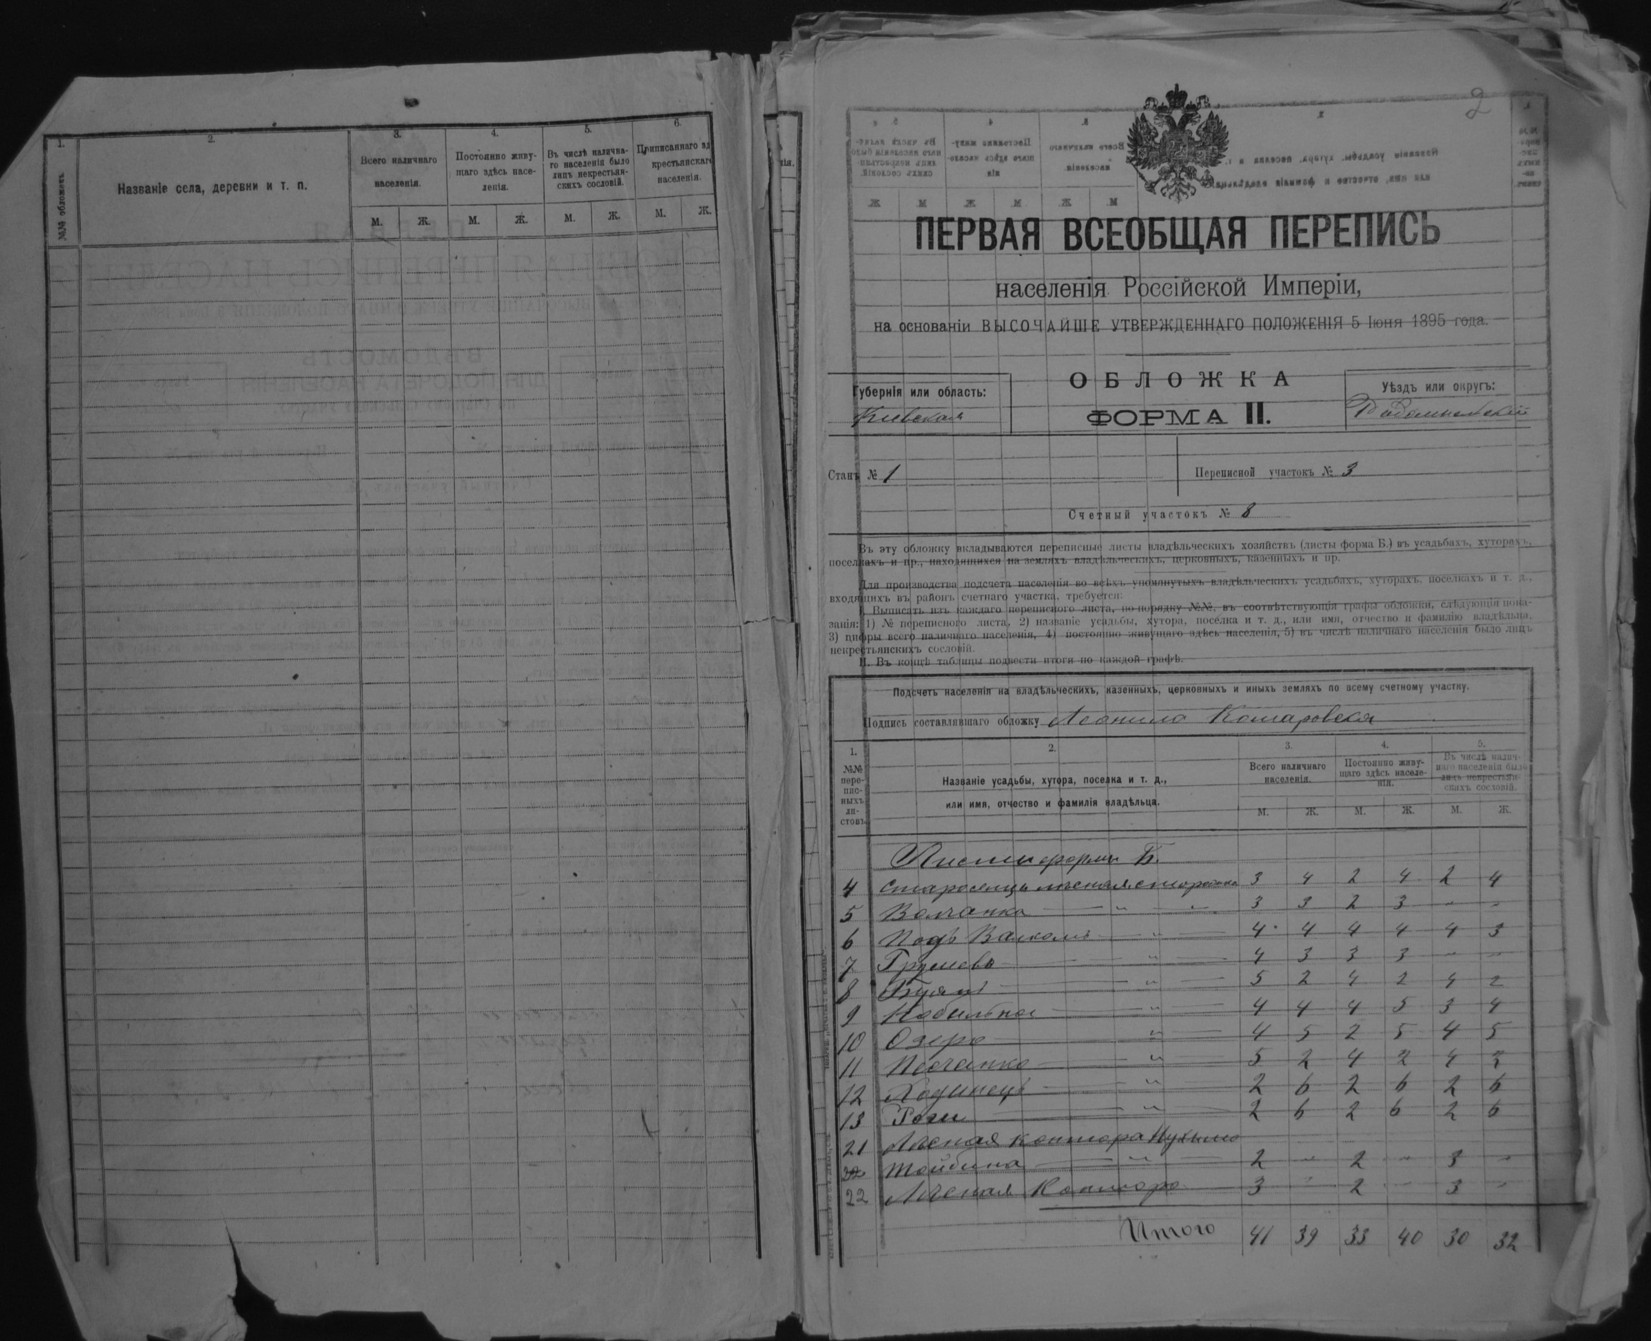 1.
2.
3.
4.
5.
6.
№№ обложекъ.
Названіе села, деревни и т. п.
Всего наличнаго населенія.
Постоянно живу-щаго здѣсь насе-ленія.
Въ числѣ налична-го населенія было лицъ некрестьян-скихъ сословій.
Приписаннаго
крестьянскаго
населенія.
М. Ж. М. Ж. М. Ж. М. Ж.
2
ПЕРВАЯ ВСЕОБЩАЯ ПЕРЕПИСЬ
населенія Россійской Имперіи,
на основаніи ВЫСОЧАЙШЕ УТВЕРЖДЕННАГО ПОЛОЖЕНІЯ 5 Іюня 1895 года.
Губернія или область:
Кіевская
ОБЛОЖКА
ФОРМА II.
Уѣздъ или округъ:
Радомысльскій
Станъ № 1
Переписной участокъ № 3
Счетный участокъ № 8
Въ эту обложку вкладываются переписные листы владѣльческихъ хозяйствъ (листы форма Б.) въ усадьбахъ, хуторахъ,
поселкахъ и пр., находящихся на земляхъ владѣльческихъ, церковныхъ, казенныхъ и пр.
Для производства подсчета населенія во всѣхъ упомянутыхъ владѣльческихъ усадьбахъ, хуторахъ, поселкахъ и т. д.,
входящихъ въ районъ счетнаго участка, требуется:
I. Выписать изъ каждаго переписного листа, по порядку №№, въ соотвѣтствующія графы обложки, слѣдующія пока-
занія: 1) № переписного листа, 2) названіе усадьбы, хутора, поселка и т. д., или имя, отчество и фамилію владѣльца,
3) цифры всего наличнаго населенія, 4) постоянно живущаго здѣсь населенія, 5) въ числѣ наличнаго населенія было лицъ
некрестьянскихъ сословій.
II. Въ концѣ таблицы подвести итоги по каждой графѣ.
Подсчетъ населенія на владѣльческихъ, казенныхъ, церковныхъ и иныхъ земляхъ по всему счетному участку.
Подпись составлявшаго обложку Леонила Комаровская
1.
2.
3.
4.
5.
№№ пере-пис-ныхъ ли-стовъ.
Названіе усадьбы, хутора, поселка и т. д.,
или имя, отчество и фамилія владѣльца.
Всего наличнаго населенія.
Постоянно живу-щаго здѣсь населе-нія.
Въ числѣ налич-наго населенія было лицъ некрестьян-скихъ сословій.
М. Ж. М. Ж. М. Ж.
Листы формы Б.
4 3 4 2 4 2 4
5 Волчанка — " — " 3 3 2 3 - -
6 Подъ — " — 4 4 4 4 4 3
7 Грушево — " — 4 3 3 3 - -
8 — " — 5 2 4 2 4 2
9 — " — 4 4 4 5 3 4
10 Озеро — " — 4 5 2 5 4 5
11 Песчанка — " — 5 2 4 2 4 2
12 — " — 2 6 2 6 2 6
13 — " — 2 6 2 6 2 6
21 Лѣсная контора
— " — 2 " 2 " 3 "
22 Лѣсная Контора 3 " 2 - 3 "
Итого 41 39 33 40 30 32